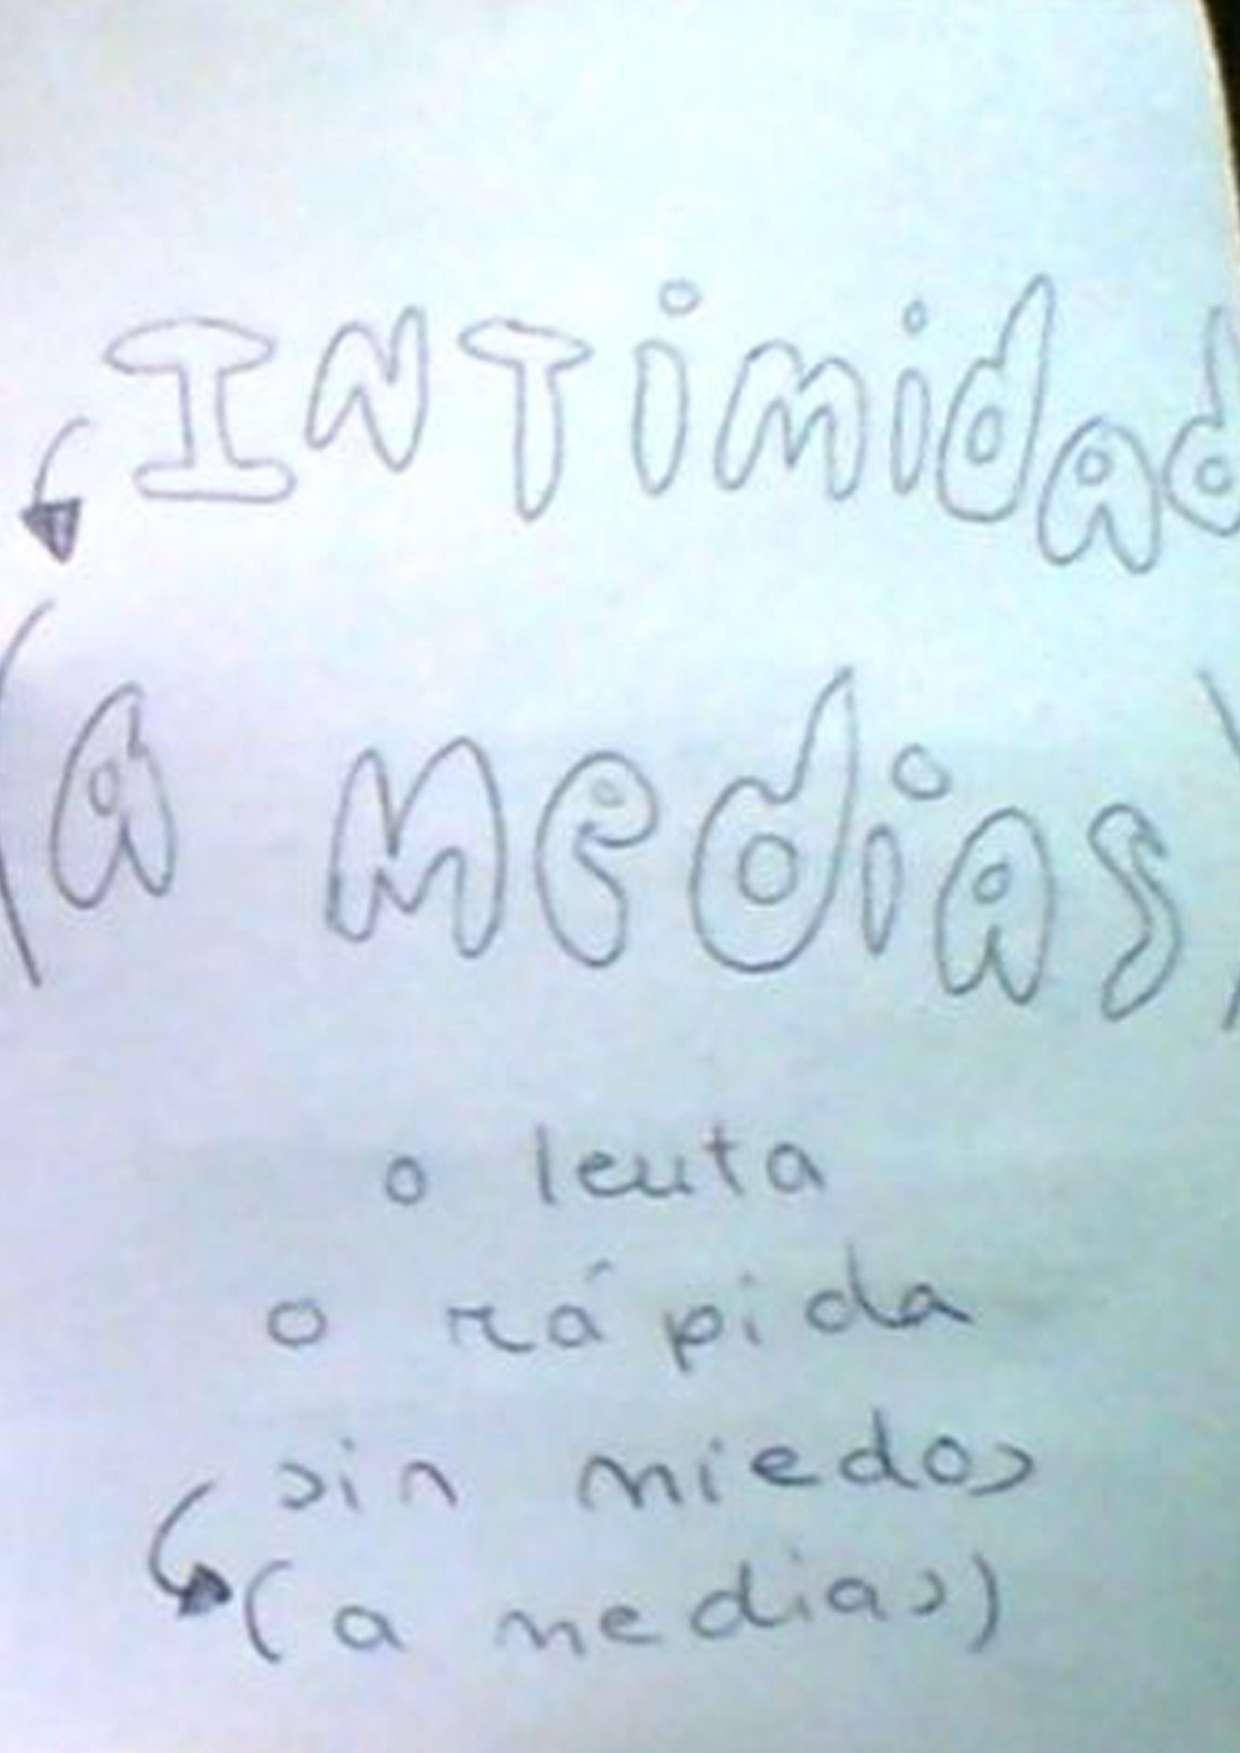 INTimidad
(a medias)
o lenta
o rápida
sin miedos
(a medias)